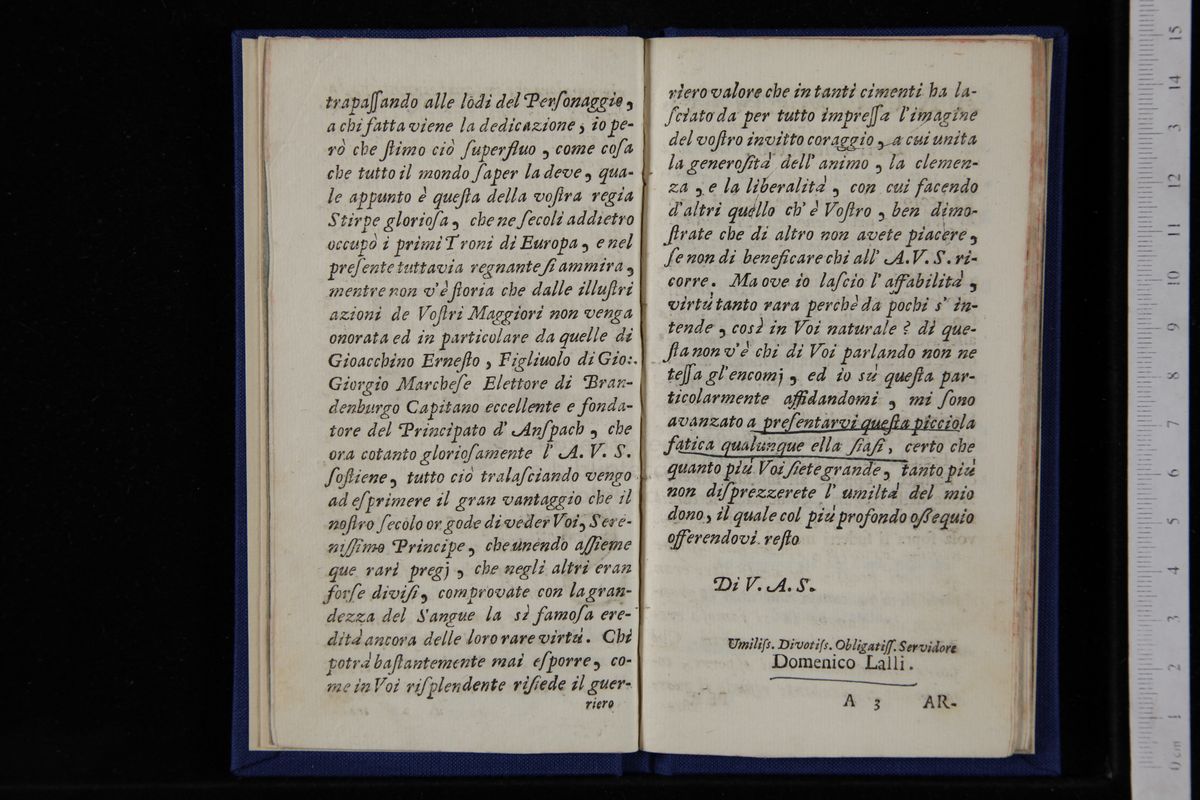 trapaſſando alle lodi del Perſonaggio,
a chi fatta viene la dedicazione, io pe-
rò che ſtimo ciò ſuperfluo, come coſa
che tutto il mondo ſaper la deve, qua-
le appunto è queſta della voſtra regia
Stirpe glorioſa, che ne ſecoli addietro
occupò i primi Troni di Europa, e nel
preſente tuttavia regnante ſi ammira,
mentre non v'è ſtoria che dalle illuſtri
azioni de Voſtri Maggiori non venga
onorata ed in particolare da quelle di
Gioacchino Erneſto, Figliuolo di Gio:.
Giorgio Marcheſe Elettore di Bran-
denburgo Capitano eccellente e fonda-
tore del Principato d' Anſpach, che
ora cotanto glorioſamente l' A. V. S.
ſoſtiene, tutto ciò tralaſciando vengo
ad eſprimere il gran vantaggio che il
noſtro ſecolo or gode di veder Voi, Sere-
niſſimo Principe, che unendo aſſieme
que rari pregj, che negli altri eran
forſe diviſi, comprovate con la gran-
dezza del Sangue la sì famoſa ere-
dità ancora delle loro rare virtù. Chi
potrà baſtantemente mai eſporre, co-
me in Voi riſplendente riſiede il guer-
riero
riero valore che in tanti cimenti ha la-
ſciato da per tutto impreſſa l'imagine
del voſtro invitto coraggio, a cui unita
la generoſità dell' animo, la clemen-
za, e la liberalità, con cui facendo
d'altri quello ch' è Voſtro, ben dimo-
ſtrate che di altro non avete piacere,
ſe non di beneficare chi all' A. V. S. ri-
corre. Ma ove io laſcio l' affabilità,
virtù tanto rara perchè da pochi s' in-
tende, così in Voi naturale? di que-
ſta non v'è chi di Voi parlando non ne
teſſa gl'encomj, ed io sù queſta par-
ticolarmente affidandomi, mi ſono
avanzato a preſentarvi queſta picciola
fatica qualunque ella ſiaſi, certo che
quanto più Voi ſiete grande, tanto più
non diſprezzerete l' umiltà del mio
dono, il quale col più profondo oßequio
offerendovi reſto
Di V. A. S.
Umiliſs. Divotiſs. Obligatiſſ. Servidore
Domenico Lalli.
A 3 AR-
15
14
3
12
11
10
9
8
7
6
5
4
3
2
1
0 cm